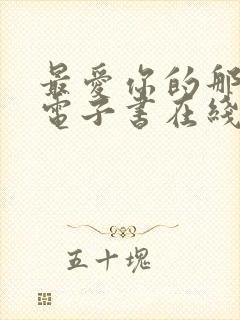 最愛你的那
電子書在綫
五十塊